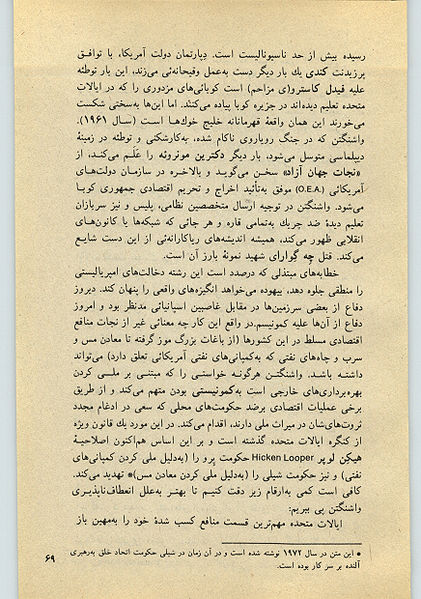 رسیده بیش از حد ناسیونالیست است. دپارتمان دولت آمریکا، با توافق
پرزیدنت کندی یك بار دیگر دست به‌عمل وقیحانه‌ئی می‌زند، این بار توطئه
علیه فیدل کاسترو(ی مزاحم) است کوبائی‌های مزدوری را که در ایالات
متحده تعلیم دیده‌اند در جزیره کوبا پیاده می‌کنند. اما این‌ها به‌سختی شکست
می‌خورند این همان واقعهٔ قهرمانانه خلیج خوك‌ها است (سال ۱۹۶۱).
واشنگتن که در جنگ رویاروی ناکام شده، به‌کارشکنی و توطئه در زمینهٔ
دیپلماسی متوسل می‌شود، بار دیگر دکترین مونروئه را عَلَم می‌کند، از
«نجات جهان آزاد» سخن می‌گوید و بالاخره در سازمان دولت‌های
آمریکائی (O.E.A.) موفق به‌تأئید اخراج و تحریم اقتصادی جمهوری کوبا
می‌شود. واشنگتن در توجیه ارسال متخصصین نظامی، پلیس و نیز سربازان
تعلیم دیدهٔ ضد چریك به‌تمامی قاره و هر جائی که شبکه‌ها یا کانون‌های
انقلابی ظهور می‌کند، همیشه اندیشه‌های ریاکارانه‌ئی از این دست شایع
می‌کند. قتل چه گوارای شهید نمونهٔ بارز آن است.
خطابه‌های مبتذلی که درصدد است این رشته دخالت‌های امپریالیستی
را منطقی جلوه دهد، بیهوده می‌خواهد انگیزه‌های واقعی را پنهان کند. دیروز
دفاع از بعضی سرزمین‌ها در مقابل غاصبین اسپانیائی مدنظر بود و امروز
دفاع از آن‌ها علیه کمونیسم.در واقع این کار چه معنائی غیر از نجات منافع
اقتصادی مسلط در این کشورها (از باغات بزرگ موز گرفته تا معادن مس و
سرب و چاه‌های نفتی که به‌کمپانی‌های نفتی آمریکائی تعلق دارد) می‌تواند
داشته باشد. واشنگتن هرگونه خواستی را که مبتنی بر ملی کردن
بهره‌برداری‌های خارجی است به‌کمونیستی بودن متهم می‌کند و از طریق
برخی عملیات اقتصادی برضد حکومت‌های محلی که سعی در ادغام مجدد
ثروت‌های‌شان در میراث ملی دارند، اقدام می‌کند. در این مورد یك قانون ویژه
از کنگره ایالات متحده گذشته است و بر این اساس هم‌اکنون اصلاحیهٔ
هیکن لوپر Hicken Looper حکومت پرو را (به‌دلیل ملی کردن کمپانی‌های
نفتی) و نیز حکومت شیلی را (به‌دلیل ملی کردن معادن مس)* تهدید می‌کند.
کافی است کمی به‌ارقام زیر دقت کنیم تا بهتر به‌علل انعطاف‌ناپذیری
واشنگتن پی ببریم:
ایالات متحده مهم‌ترین قسمت منافع کسب شدهٔ خود را به‌میهن باز
* این متن در سال ۱۹۷۲ نوشته شده است و در آن زمان در شیلی حکومت اتحاد خلق به‌رهبری
آلنده بر سر کار بوده است.
۶۹